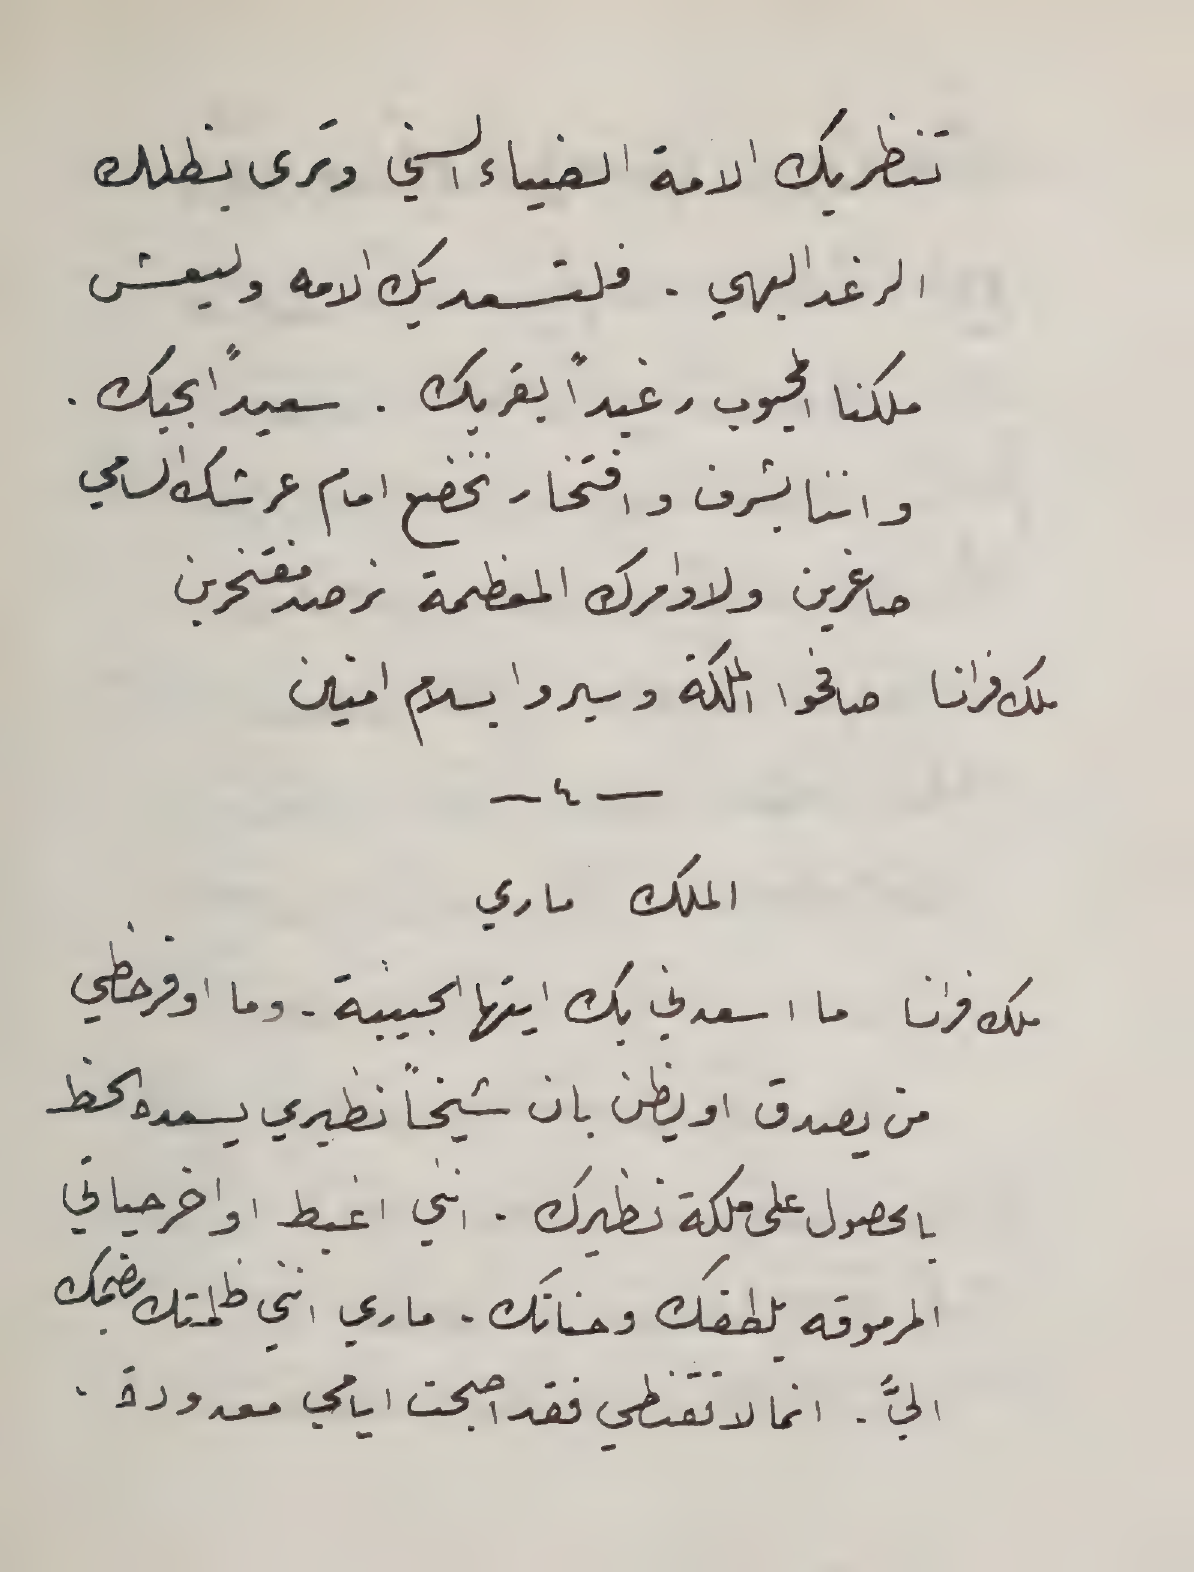 تنظر بك الامة الضياء السني وترى بظلك
الرغد البهي . فلتسعد بك الامه وليعش
ملكنا المحبوب رغيداً بقربك . سعيداً بحبك .
واننا بشرف وافتخار نخضع امام عرشك السامي
صاغرين ولاوامرك المعظمة نرصد مفتخرين
ملك فرانسا صافحوا الملكة وسيروا بسلام امنين
— ٤ —
الملك ماري
ملك فرانسا ما اسعدني بك ايتها الحبيبة . وما اوفر حظي
من يصدق او يظن بان شيخاً نظيري يسعده الحظ
بالحصول على ملكة نظيرك . انني اغبط اواخر حياتي
المرموقه بلطفك وحنانك . ماري انني ظلمتك بضمك
اليَّ . انما لا تقنطي فقد اصبحت ايامي معدودة .